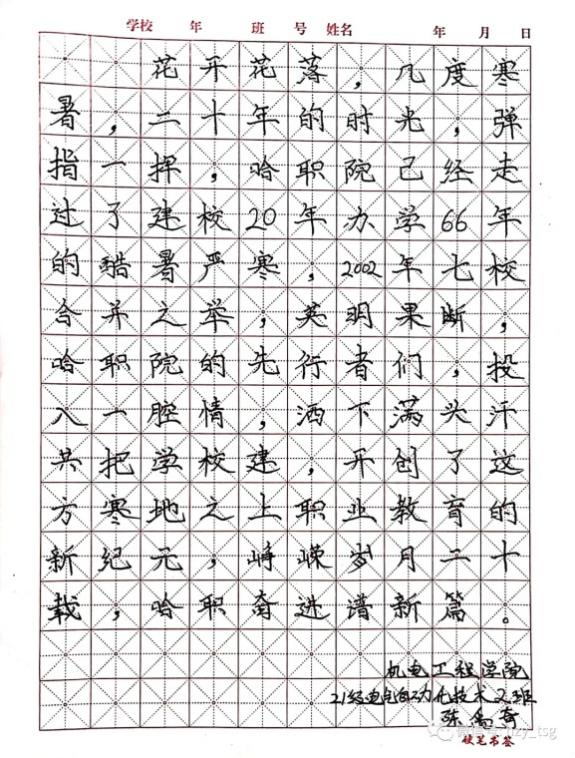 学校 年 班 号 姓名 年 月 日
花开花落，几度寒
暑，二十年的时光，弹
指一挥，哈职院已经走
过了建校20年办学66年
的酷暑严寒，2002年七校
合并之举，英明果断，
哈职院的先行者们，投
入一腔情，洒下满头汗
共把学校建，开创了这
方寒地之上职业教育的
新纪元，峥嵘岁月二十
载，哈职奋进谱新篇。
机电工程学院
21级电气自动化技术2班
陈 奇
硬笔书签